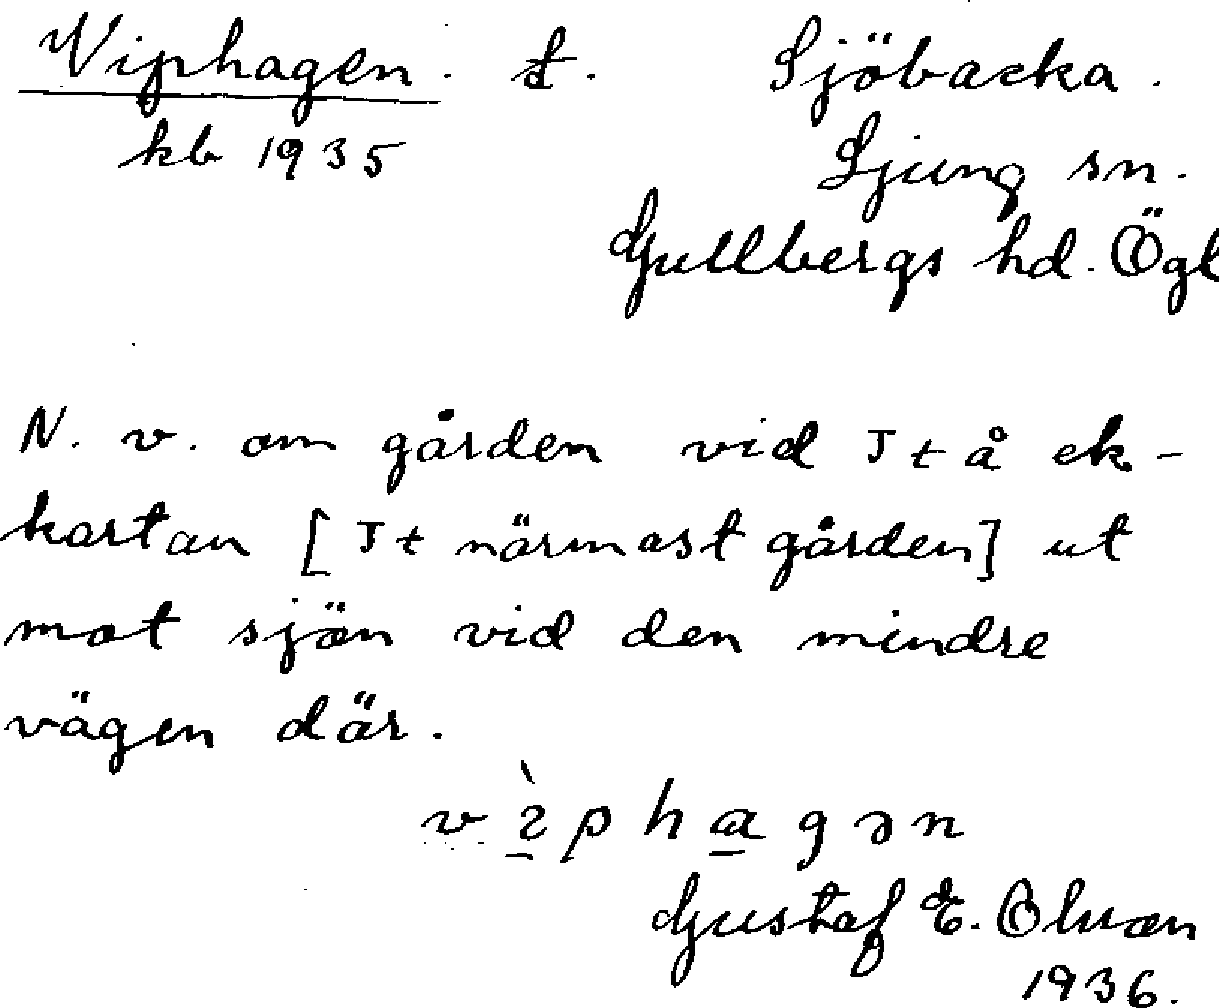 Viphagen. t. Sjöbacka.
kb 1935 Ljung sn.
Gullbergs hd. Ögl
N. v. om gården vid J t å ek-
kartan [J t närmast gården] ut
mot sjön vid den mindre
vägen där.
Gustaf E. Olsson
1936.